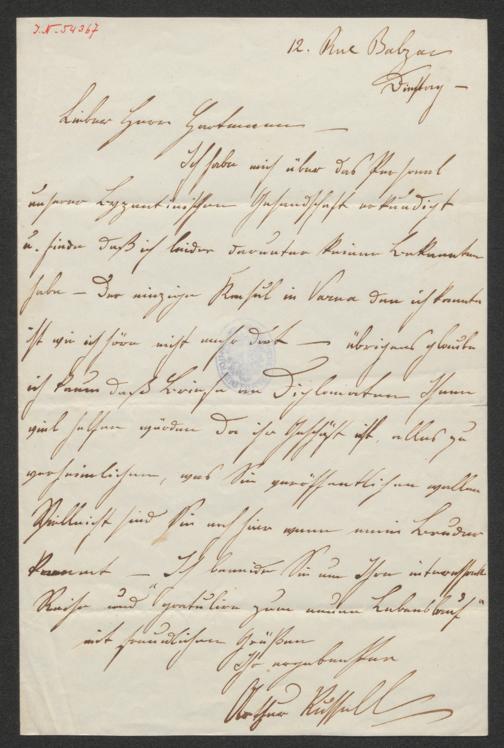 J.N. 54367
12. Rue Balzac
Dienstag –
Lieber Herr Hartmann –
Ich habe mich über das Personal
unserer Byzantinischen Gesandschaft erkundigt
u. finde daß ich leider darunter keinen Bekannten
habe – Der einzige Konsul in Varna den ich kannte
ist wie ich höre nicht mehr dort – übrigens glaube
ich kaum daß Briefe an Diplomaten Ihnen
viel helfen würden da ihr Geschäft ist, alles zu
verheimlichen, was Sie veröffentlichen wollen
Vielleicht sind Sie noch hier wenn mein Bruder
kommt – Ich beneide Sie um Ihre interessante
Reise und gratulire zum neuen
mit freundlichen Grüßen
Ihr ergebenster
Arthur Russell